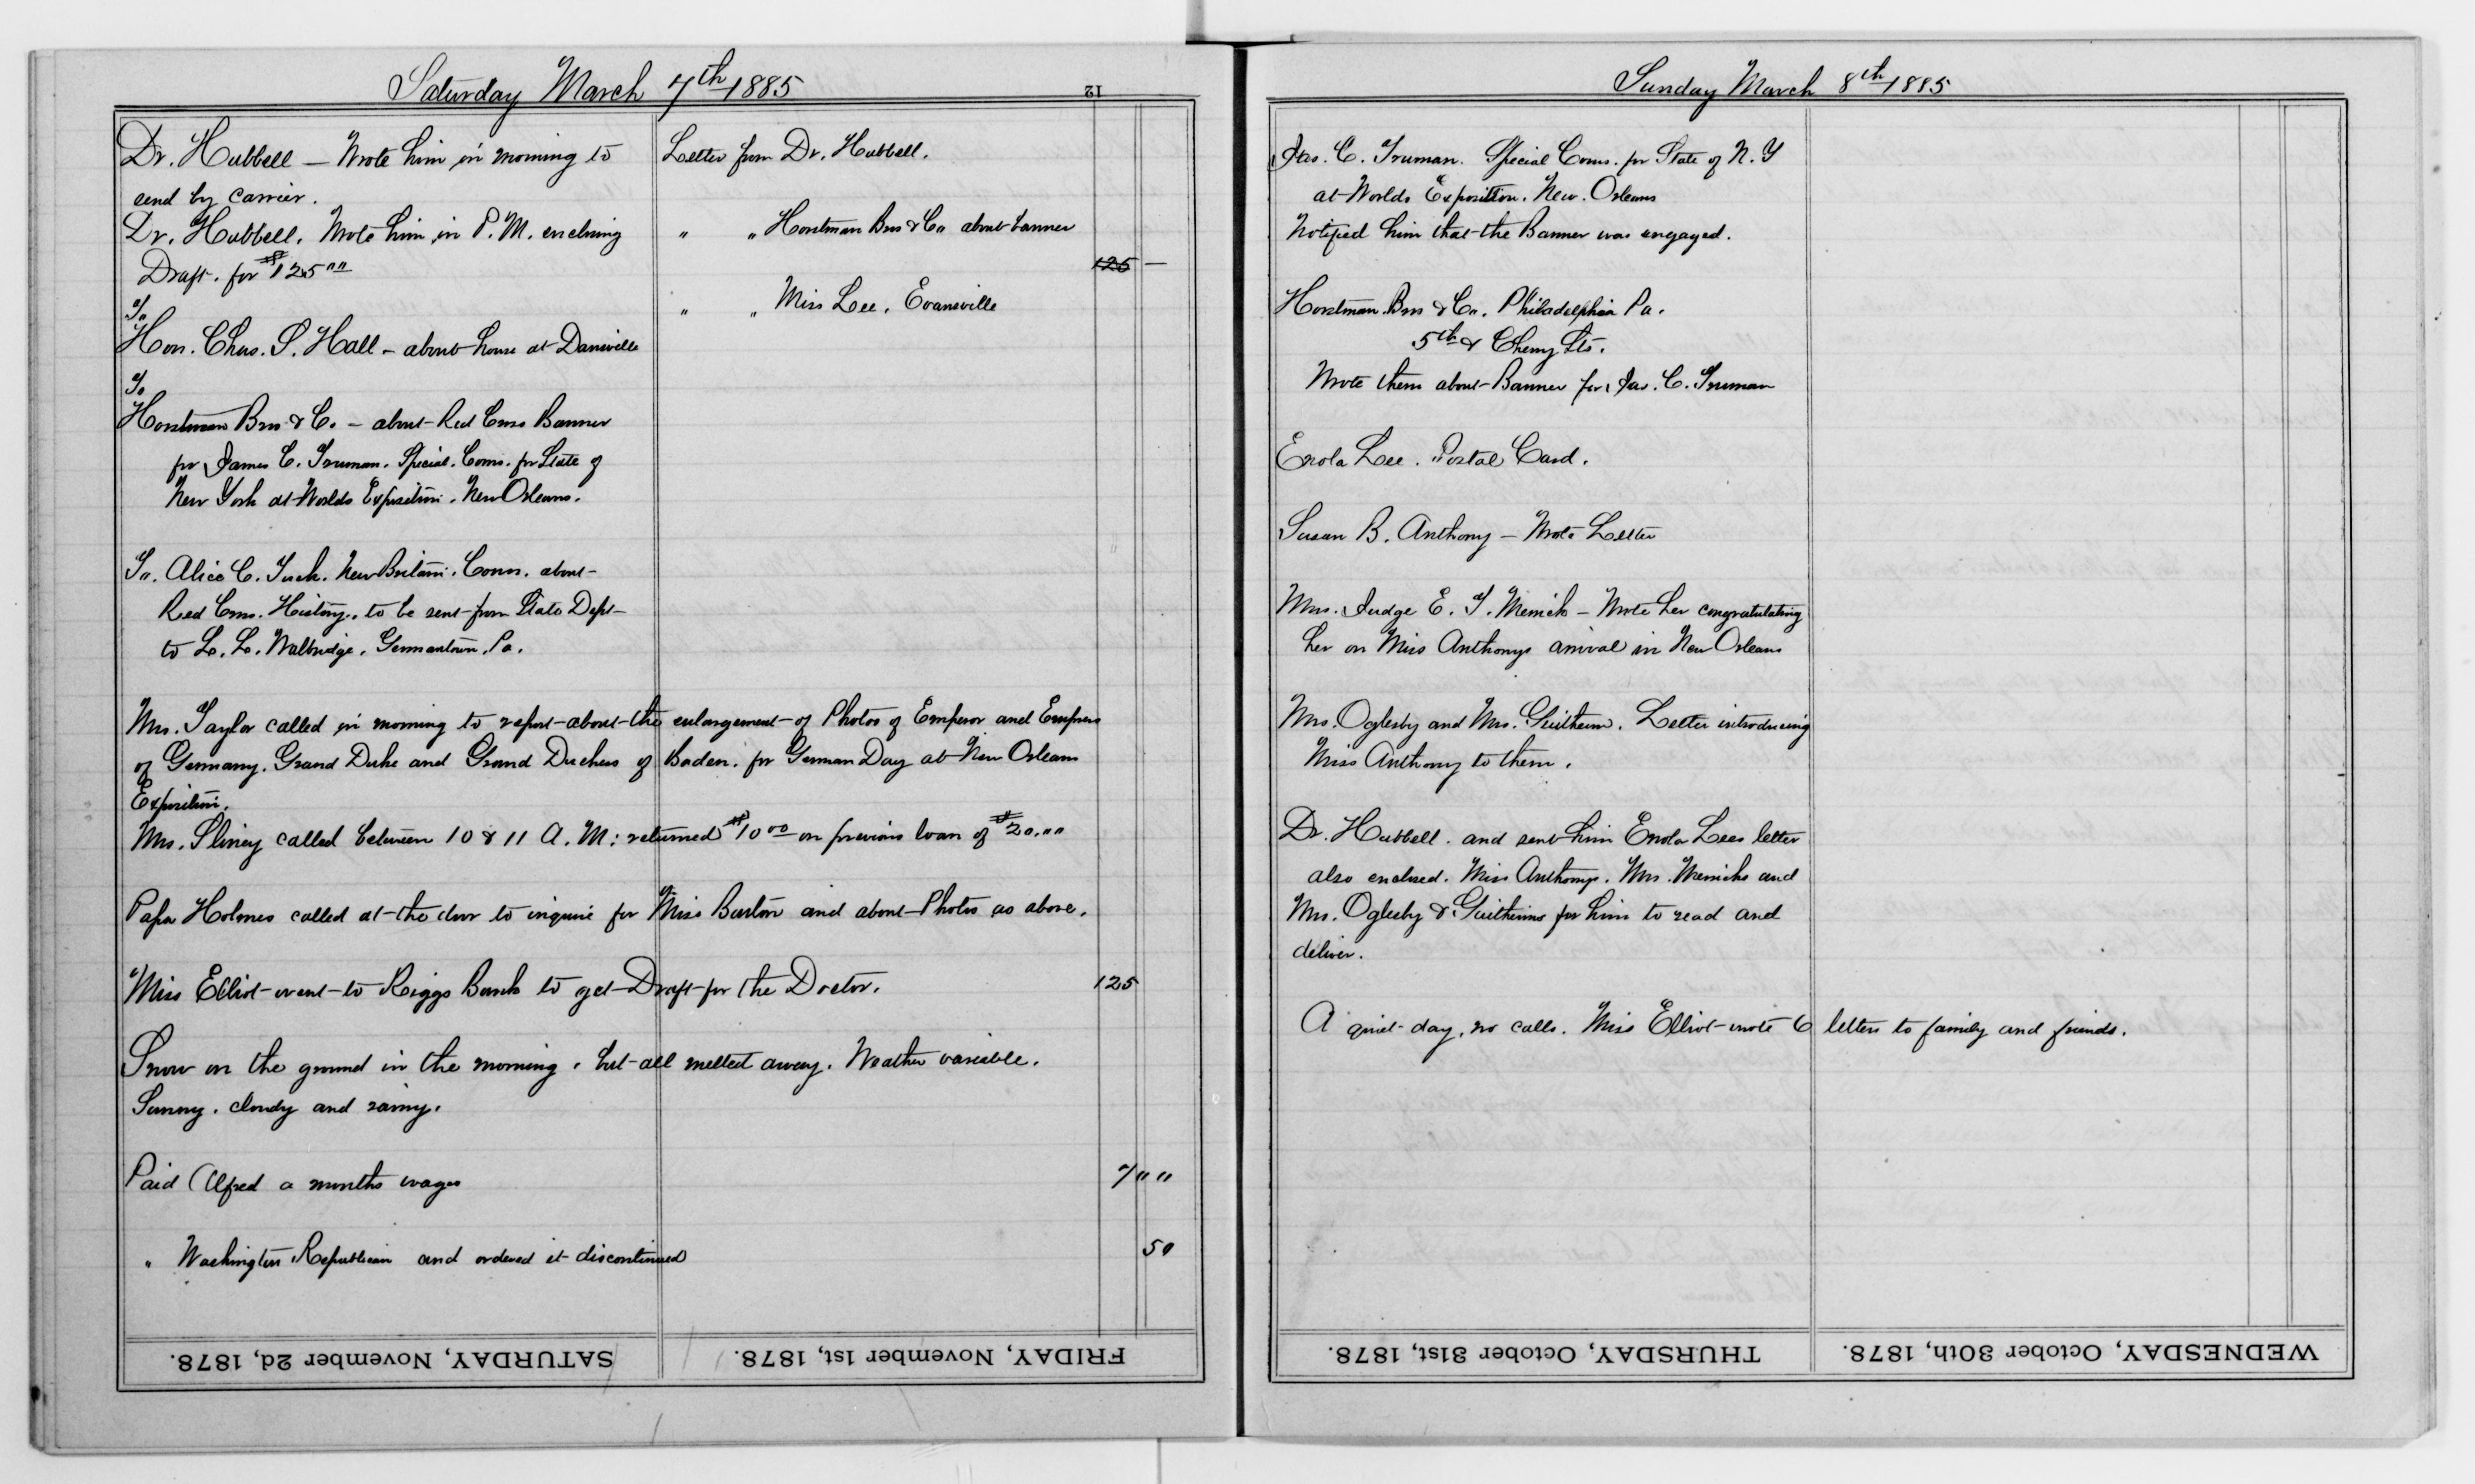 Saturday March 7th 1885
12
Dr. Hubbell — Wrote him in morning to
send by carrier.
Dr. Hubbell. Wrote him in P.M. enclosing
Draft. for $125"" 
To
Hon. Chas. S. Hall - about house at Dansville
To
Horstman Bros & Co. - about Red Cross Banner
for James C. Truman. Special. Coms. for State of
New York at Worlds Exposition. New Orleans.
To. Alice C. Tuck. New Britain. Conn. about
Red Cross. History. to be sent from State Dept
to L. L. Walbridge. Germantown. Pa.
Letter from Dr. Hubbell.
" " Horstman Bros & Co about banner
125 —
" " Miss Lee. Evansville
Mrs. Taylor called in morning to report about the enlargement of Photos of Emperor and Empress
of Germany. Grand Duke and Grand Duchess of Baden. for German Day at New Orleans
Exposition.
Mrs. Sliney called between 10 & 11 A.M: returned $10 00 on previous loan of $20.""
Papa Holmes called at the door to inquire for Miss Barton and about Photos as above.
Miss Elliot went to Riggs Bank to get Draft for the Doctor. 125
Snow on the ground in the morning. but all melted away. Weather variable.
Sunny. cloudy and rainy.
Paid Alfred a months wages 7 " "
" Washington Republican and ordered it discontinued 50
SATURDAY, November 2d, 1878.
FRIDAY, November 1st, 1878.
Sunday March 8th 1885
Jas. C. Truman. Special Coms. for State of N.Y
at Worlds Exposition. New. Orleans
Notified him that the Banner was engaged.
Horstman Bros & Co. Philadelphia Pa.
5th & Cherry Sts.
Wrote them about Banner for Jas. C. Truman
Enola Lee. Postal Card.
Susan B. Anthony — Wrote Letter
Mrs. Judge E. T. Merrick — Wrote her congratulating
her on Miss Anthonys arrival in New Orleans
Mrs. Oglesby and Mrs. Guitheim. Letter introducing
Miss Anthony to them.
Dr. Hubbell. and sent him Enola Lees letter
also enclosed. Miss Anthonys. Mrs. Merricks and
Mrs. Oglesby & Guitheims for him to read and
deliver.
A quiet day, no calls. Miss Elliot wrote 6 letters to family and friends.
THURSDAY, October 31st, 1878.
WEDNESDAY, October 30th, 1878.